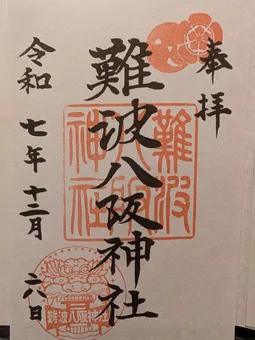 奉拝
難波八阪神社
令和七年十二月六日
難波八阪神社
難波八阪神社